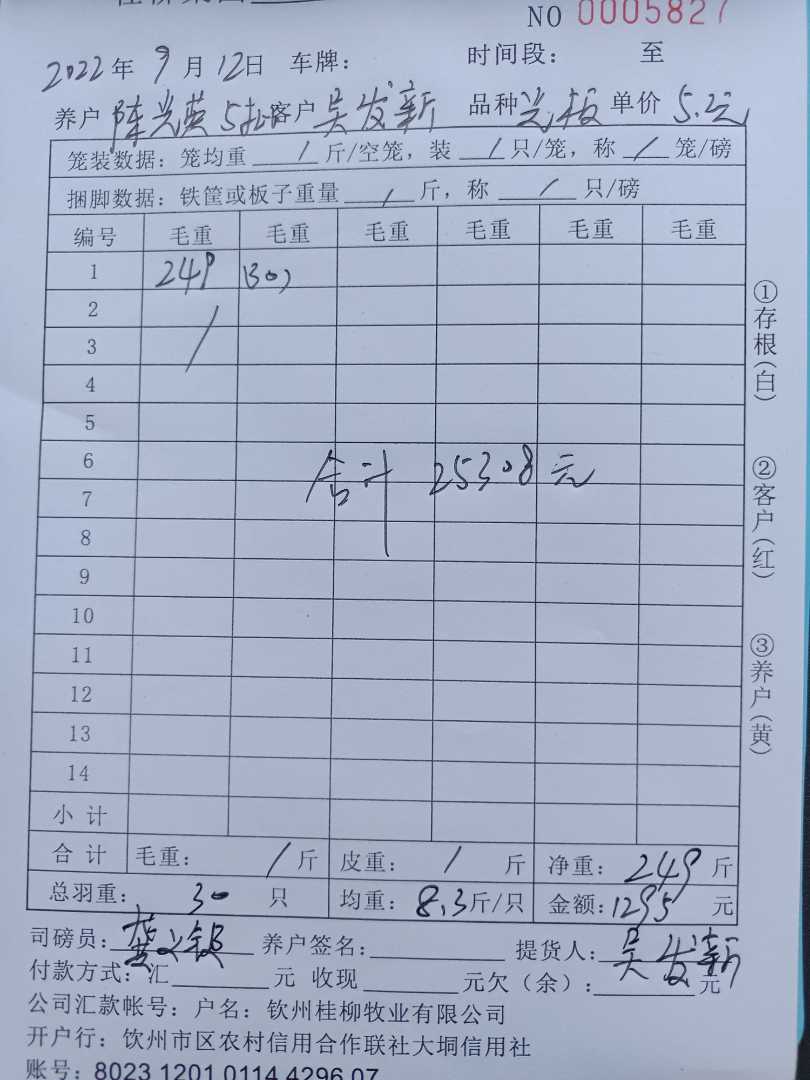 NO 0005827
2022年9月12日 车牌： 时间段： 至
养户 陈光英 5批 客户 吴发新 品种 光板 单价 5.2元
笼装数据：笼均重 / 斤/空笼，装 / 只/笼，称 / 笼/磅
捆脚数据：铁筐或板子重量 / 斤，称 / 只/磅
编号 毛重 毛重 毛重 毛重 毛重 毛重
1 249 (30)
2
3 /
4
5
6
合计 25308元
7
8
9
10
11
12
13
14
小计
合计 毛重： / 斤 皮重： / 斤 净重： 249 斤
总羽重： 30 只 均重： 8.3斤/只 金额：1295 元
司磅员： 养户签名： 提货人：吴发新
付款方式：汇 元 收现 元欠（余）： 元
公司汇款帐号：户名：钦州桂柳牧业有限公司
开户行：钦州市区农村信用合作联社大垌信用社
账号：8023 1201 0114 4296 07
①存根(白)
②客户(红)
③养户(黄)